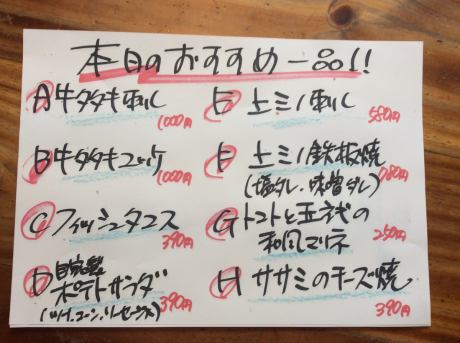 本日のおすすめ一品!!
A 牛タタキ刺し
1000円
B 牛タタキユッケ
1000円
C フィッシュタコス
390円
D 自家製
ポテトサラダ
390円
E 上ミノ刺し
580円
F 上ミノ鉄板焼
780円
(塩ダレ、味噌ダレ)
G トマトと玉ネギの
和風マリネ
250円
H ササミのチーズ焼
390円